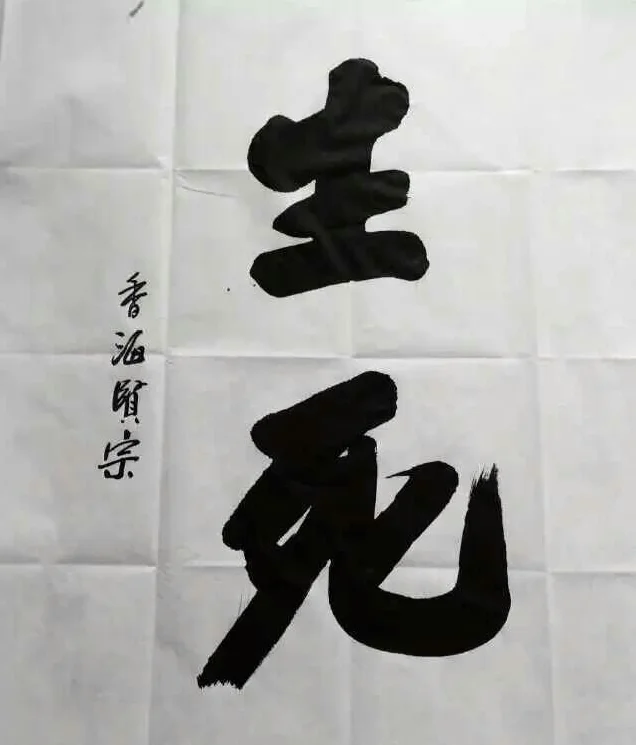 生死
香海賢宗